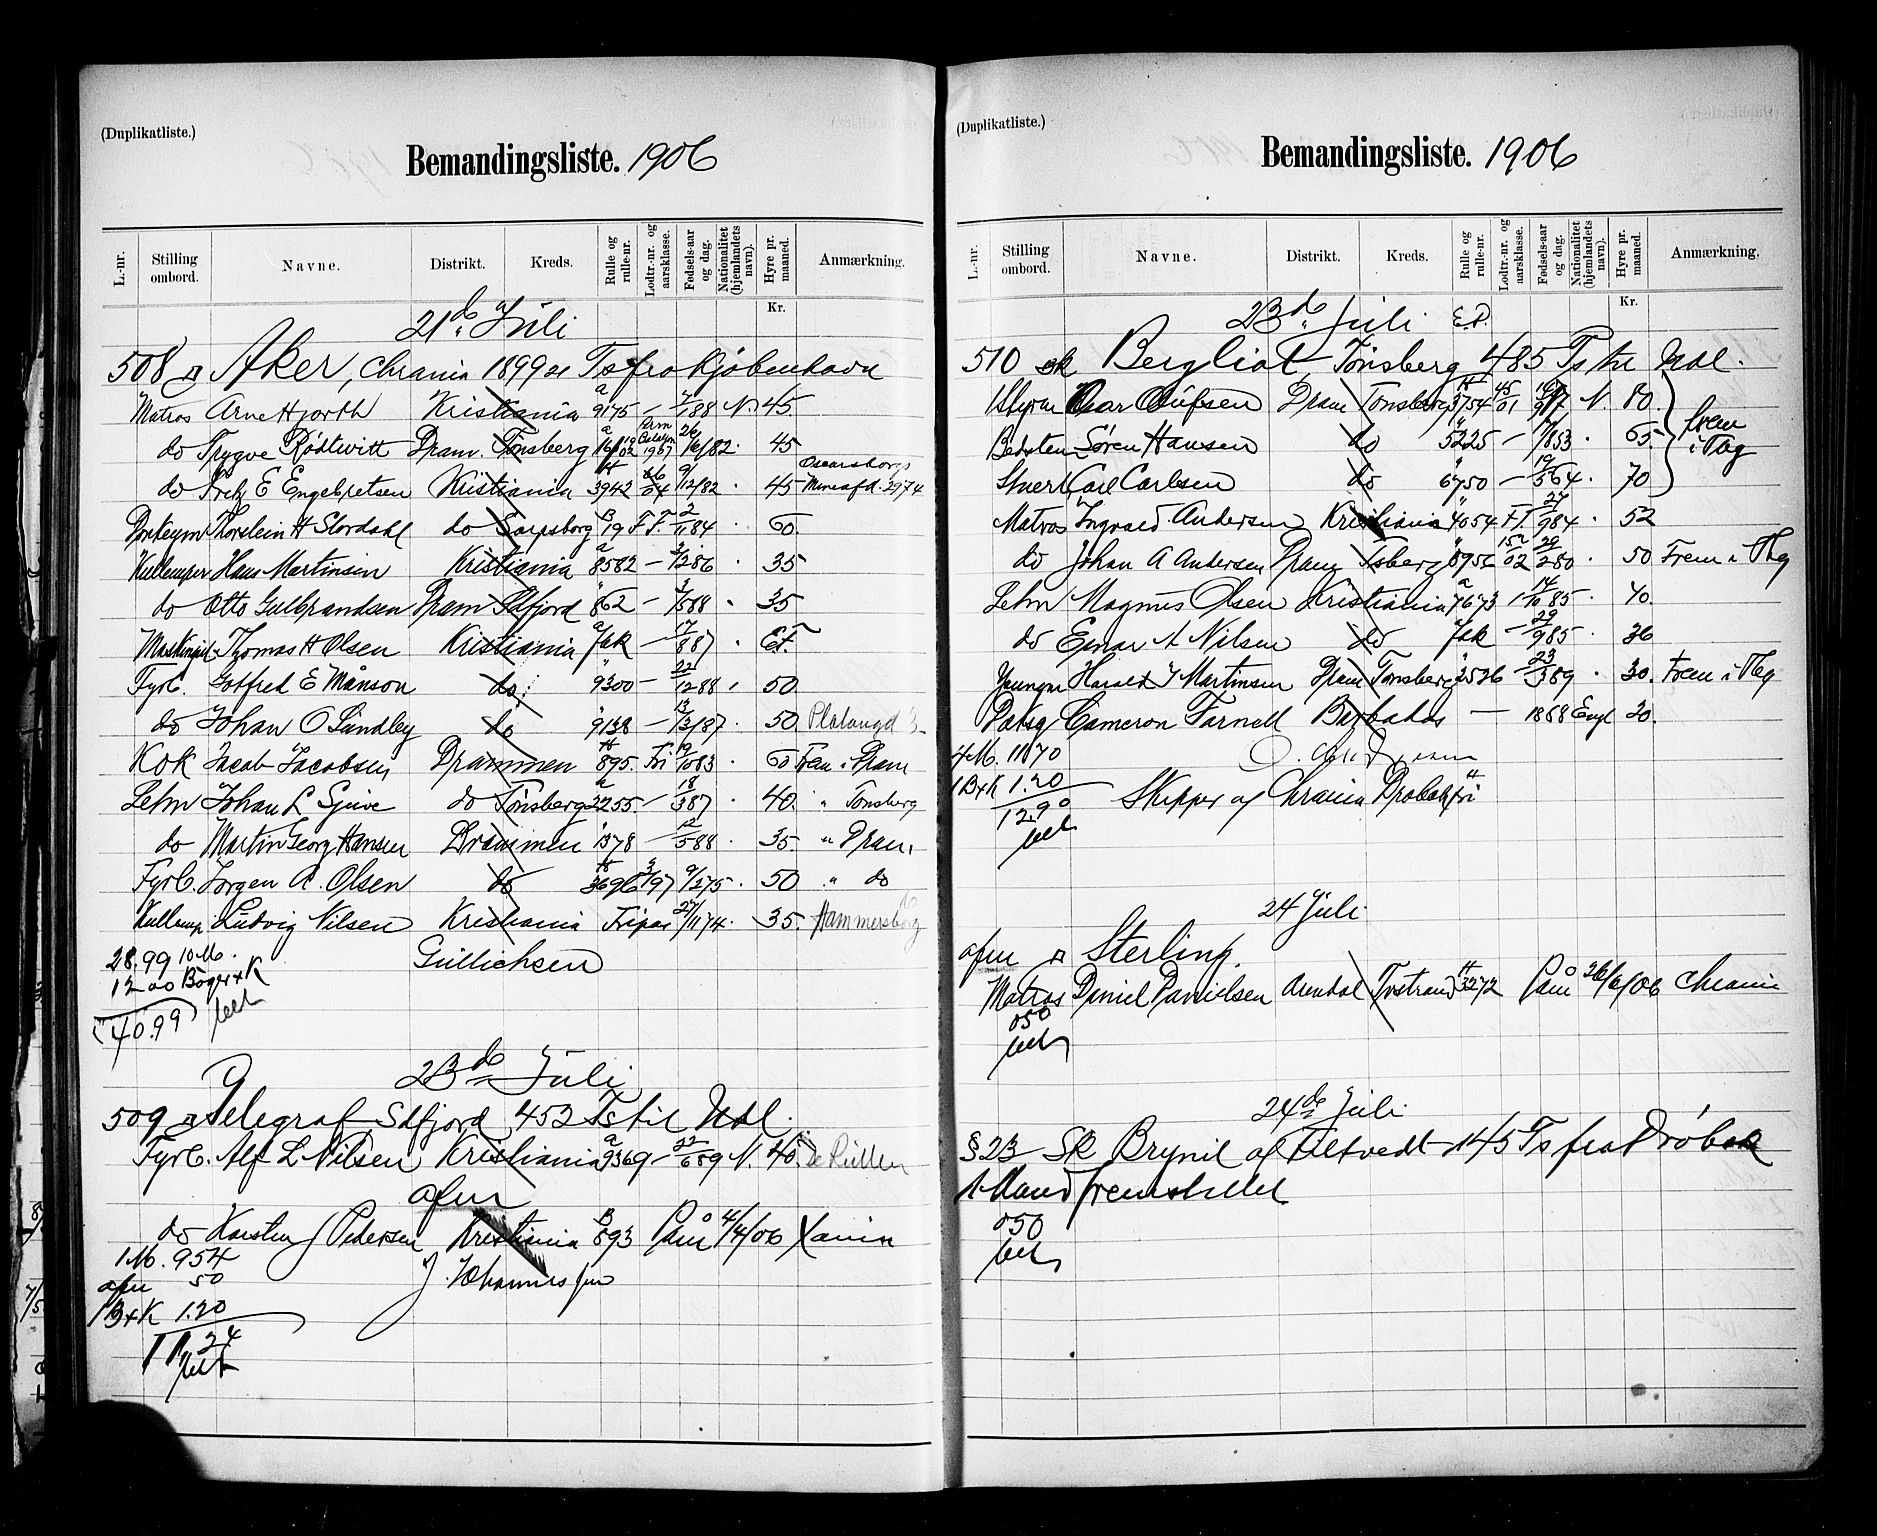 (Duplikatliste.)
Bemandingsliste. 1906
L.-nr. Stilling ombord. Navne. Distrikt. Kreds. Rulle og rulle-nr. Lodtr.-nr. og aarsklasse. Fødsels-aar og dag. Nationalitet (hjemlandets navn). Hyre pr. maaned. Anmærkning.
Kr.
21de Juli
508 Aker, Chrania 1899 Ts fra Kjøbenhavn
Matros Arne Hjorth Kristiania a 9175 — 188 N. 45
do Trygve Rødtwitt Dram. Tønsberg 26/6/82 45
do Fritz E Engebretsen Kristiania 3942 9/12/82 45 Oscarsborgs Mineafd. 2974
Donkeym Thorstein H Stordahl do Sarpsborg B 19 F.F. 2/1184 60
Kullemper Hans Martinsen Kristiania a 8582 — 286 35
do Otto Gulbrandsen Dram Sdfjord 862 — 588 35
Thomas H Olsen Kristiania — 17/887
Fyrb. Gotfred E Månson do 9300 — 22/1288 50
do Johan O Sundley do 9138 — 13/3/87 50
Kok Jacob Jacobsen Drammen 895. Fri 19/1083 60 Frem i Dram
Letm Johan L Syive do Tønsberg a 2255 — 18/387 40 " Tønsberg
do Martin Georg Hansen Drammen 1378 — 12/588 35 " Dram.
Fyrb. Jørgen A. Olsen do 3696 3/97 9/275 50 " do
Kullemp Ludvig Nilsen Kristiania 27/1174 35. Hammersborg
28.99 10 M. Gullichsen
12 00 Bøger + K
40.99 bet
23de Juli
509 Telegraf Sdfjord 453 Ts til Udl.
Fyrb. Alf L Nilsen Kristiania a 9369 — 22/689 N. 40
afm
do Karsten J Pedersen Kristiania B 893 Påm 4/4/06 Xania
1 M. 954 J. Johannessen
afm 50
1 B + K 1.20
11.24
bet
(Duplikatliste.)
Bemandingsliste. 1906
L.-nr. Stilling ombord. Navne. Distrikt. Kreds. Rulle og rulle-nr. Lodtr.-nr. og aarsklasse. Fødsels-aar og dag. Nationalitet (hjemlandets navn). Hyre pr. maaned. Anmærkning.
Kr.
23de Juli
510 sk Bergliot Tønsberg 485 Ts til Udl.
1 Styrm Olufsen Dram Tønsberg 3754 45/01 N. 80 frem
Bedsten Søren Hansen do 5225 — 853 65 i Tbg
Stuert Carl Carlsen do 6750 — 19/564 70
Matros Ingvald Andersen Kristiania 4054 Ff. 27/984 52
do Johan A Andersen Dram Tsberg 8956 152/02 29/280 50 Frem i Tbg
Letm Magnus Olsen Kristiania a 7673 14/10 85 40
do Einar A Nilsen do — 29/985 36
Youngm Harald J Martinsen Dram Tønsberg 2526 — 23/389 30 Frem i Tbg
Cameron Farnell Barbados — 1868 Engl 30.
4 M. 11.70
1 B + K 1.20 Skipper af Chrania
12.90
bet
24 Juli
afm Sterling.
Matros Daniel Danielsen Arendal Tvstrand 3272 Påm 26/6/06 Chrania
050
bet
24de Juli
§ 23 Sk Brynil af Filtvedt 145 Ts fra Drøbak
1 Mand fremstillet
050
bet